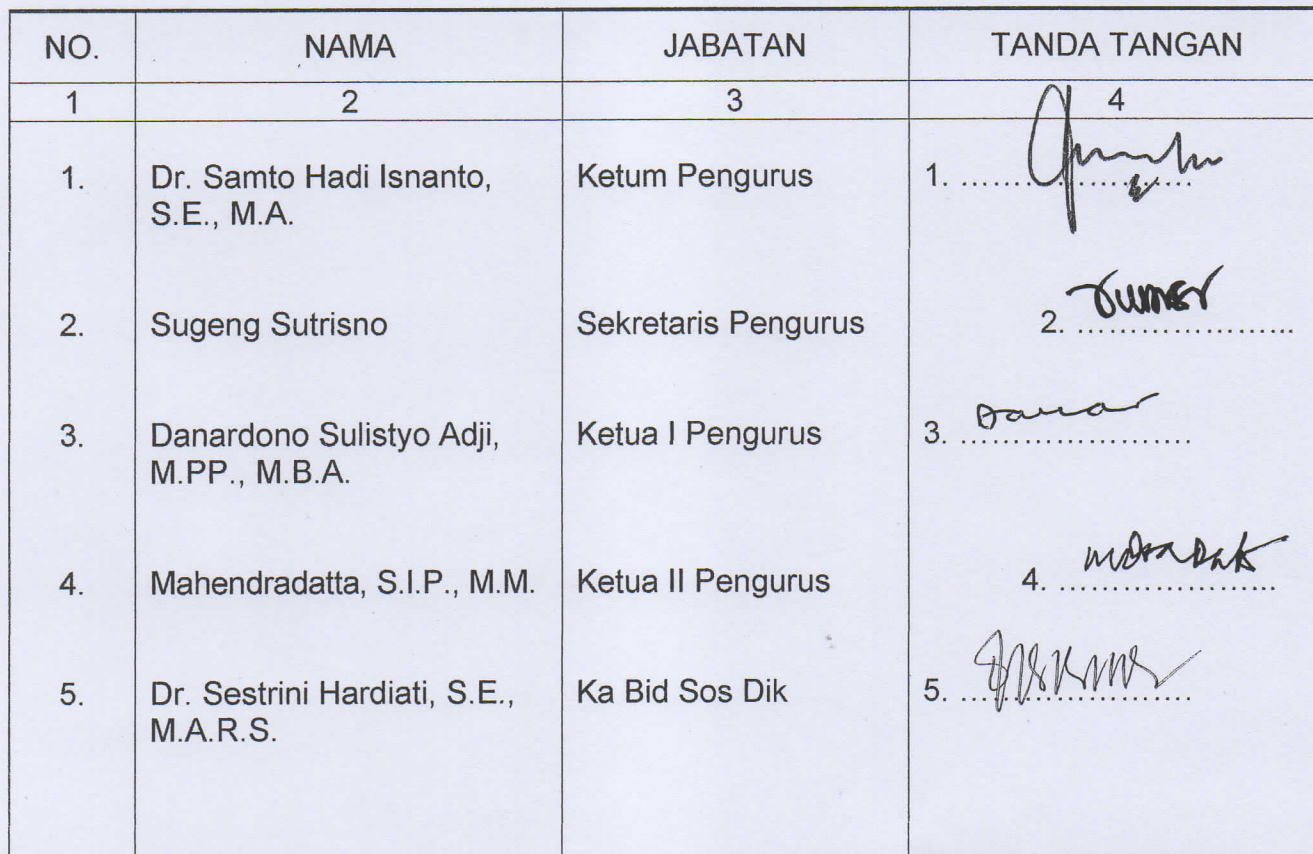 NO. NAMA JABATAN TANDA TANGAN
1 2 3 4
1. Dr. Samto Hadi Isnanto, Ketum Pengurus 1. ......................
S.E., M.A.
2. Sugeng Sutrisno Sekretaris Pengurus 2. ......................
3. Danardono Sulistyo Adji, Ketua I Pengurus 3. ......................
M.PP., M.B.A.
4. Mahendradatta, S.I.P., M.M. Ketua II Pengurus 4. ......................
5. Dr. Sestrini Hardiati, S.E., Ka Bid Sos Dik 5. ......................
M.A.R.S.